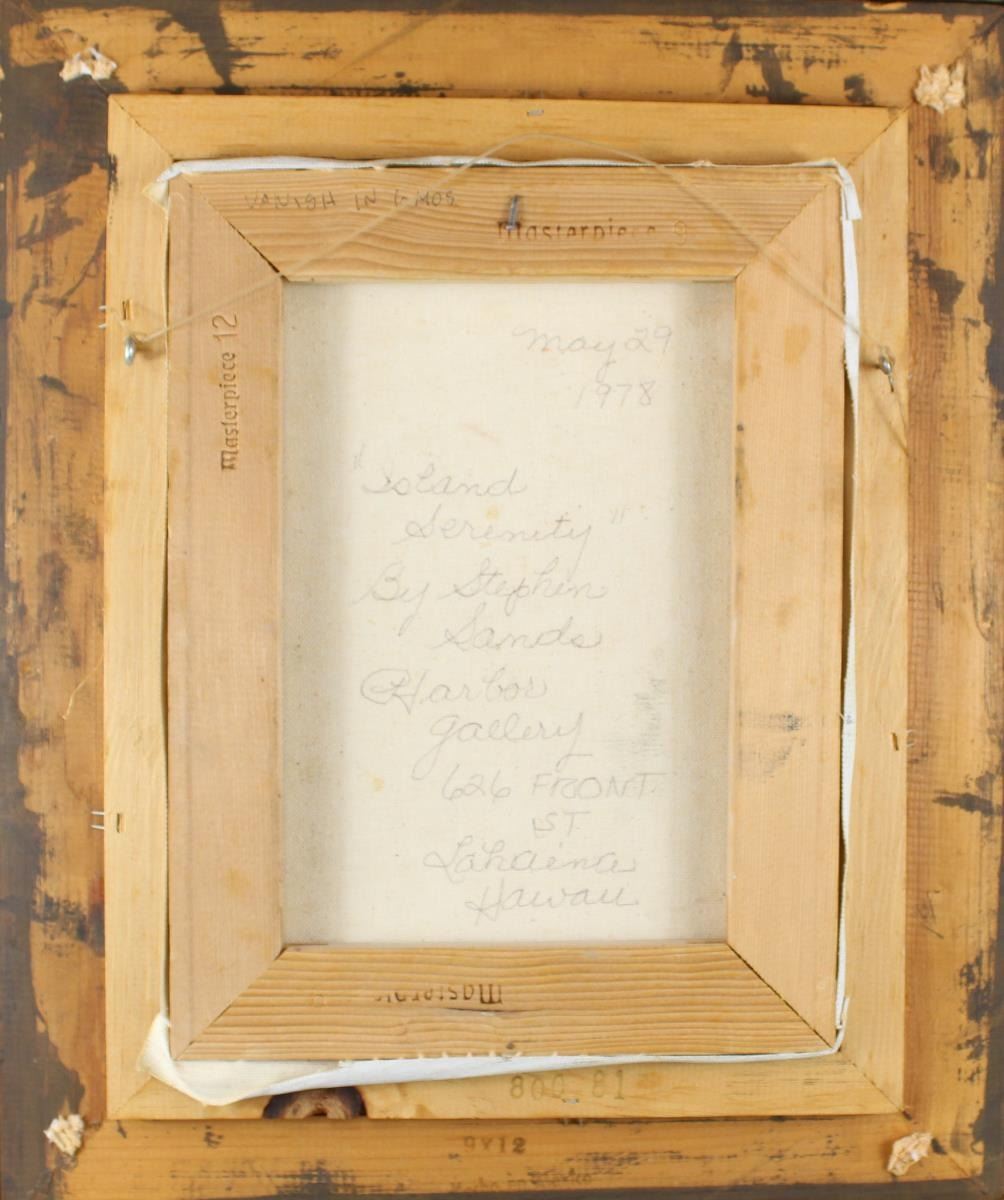 VANISH IN 6 MOS.
Masterpiece 9
Masterpiece 12
May 29
1978
"Island
Serenity"
By Stephen
Sands
Harbor
Gallery
626 FRONT
ST.
Lahaina
Hawaii
Masterpiec
800 81
9X12